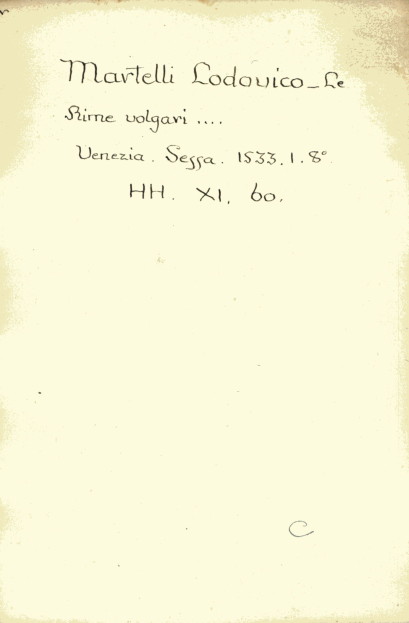 Martelli Lodovico_Le
Rime volgari ....
Venezia. Sessa. 1533. 1. 8°
HH. XI. 60.
C